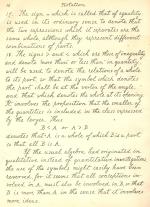 Notation.
17. The sign = which is called that of equality
is used in its ordinary sense to denote that
the two expressions which it separates are the
same whole, although they represent different
combinations of parts.
18. The signs > and < which are those of inequality
and denote "more than" or "less than" in quantity
will be used to denote the relations of a whole
to its part so that the symbol which denotes
the part shall be at the vertex of the angle,
and that which denotes the whole at its opening.
It involves the proposition that the smaller of the
quantities is included in the class expressed
by the larger. Thus
B < A or A > B
denotes that A is a whole of which B is a part
so that all B is A.
If the usual algebra, had originated in
qualitative instead of quantitative investigations
the use of the symbols might easily have been
reversed; for all conceptions in-
volved in A must also be involved in B so that
B is more than A in the sense that it involves
more ideas.